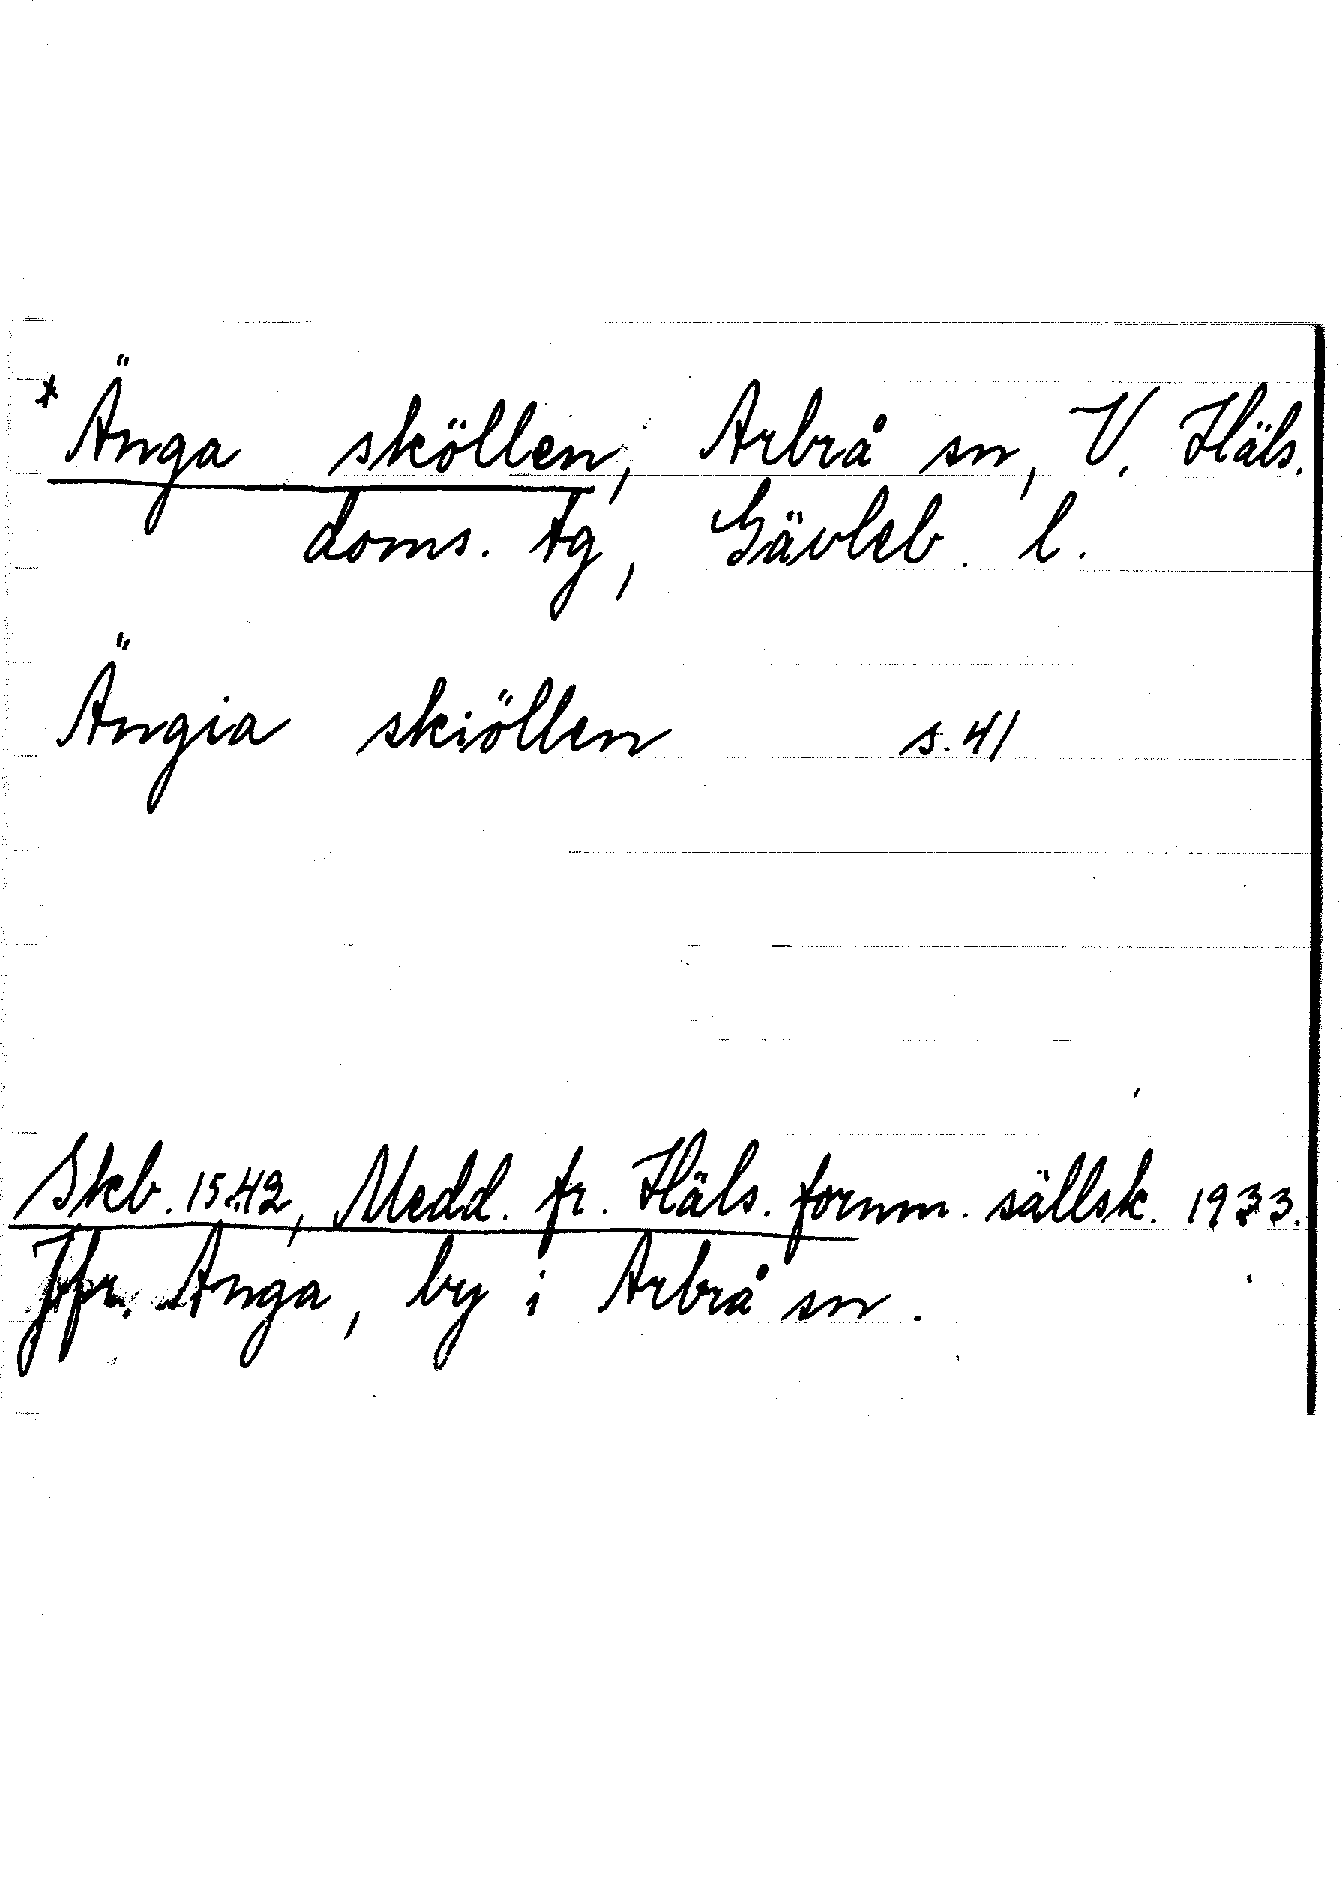 * Änga sköllen, Arbrå sn, V. Häls.
doms. tg, Gävleb. l.
Ängia skiöllen s. 41
Skb. 1542, Medd. fr. Häls. fornm. sällsk. 1933.
Jfr. Änga, by i Arbrå sn.